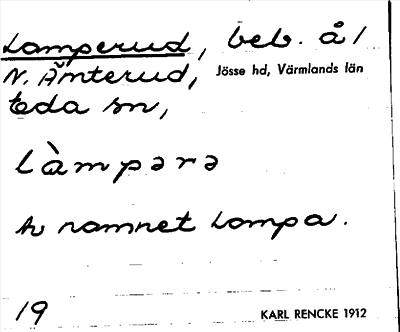 Lamperud, beb. å 1
N. Ämterud, Jösse hd, Värmlands län
Eda sn,
làmpərə
Av namnet Lampa.
19 KARL RENCKE 1912